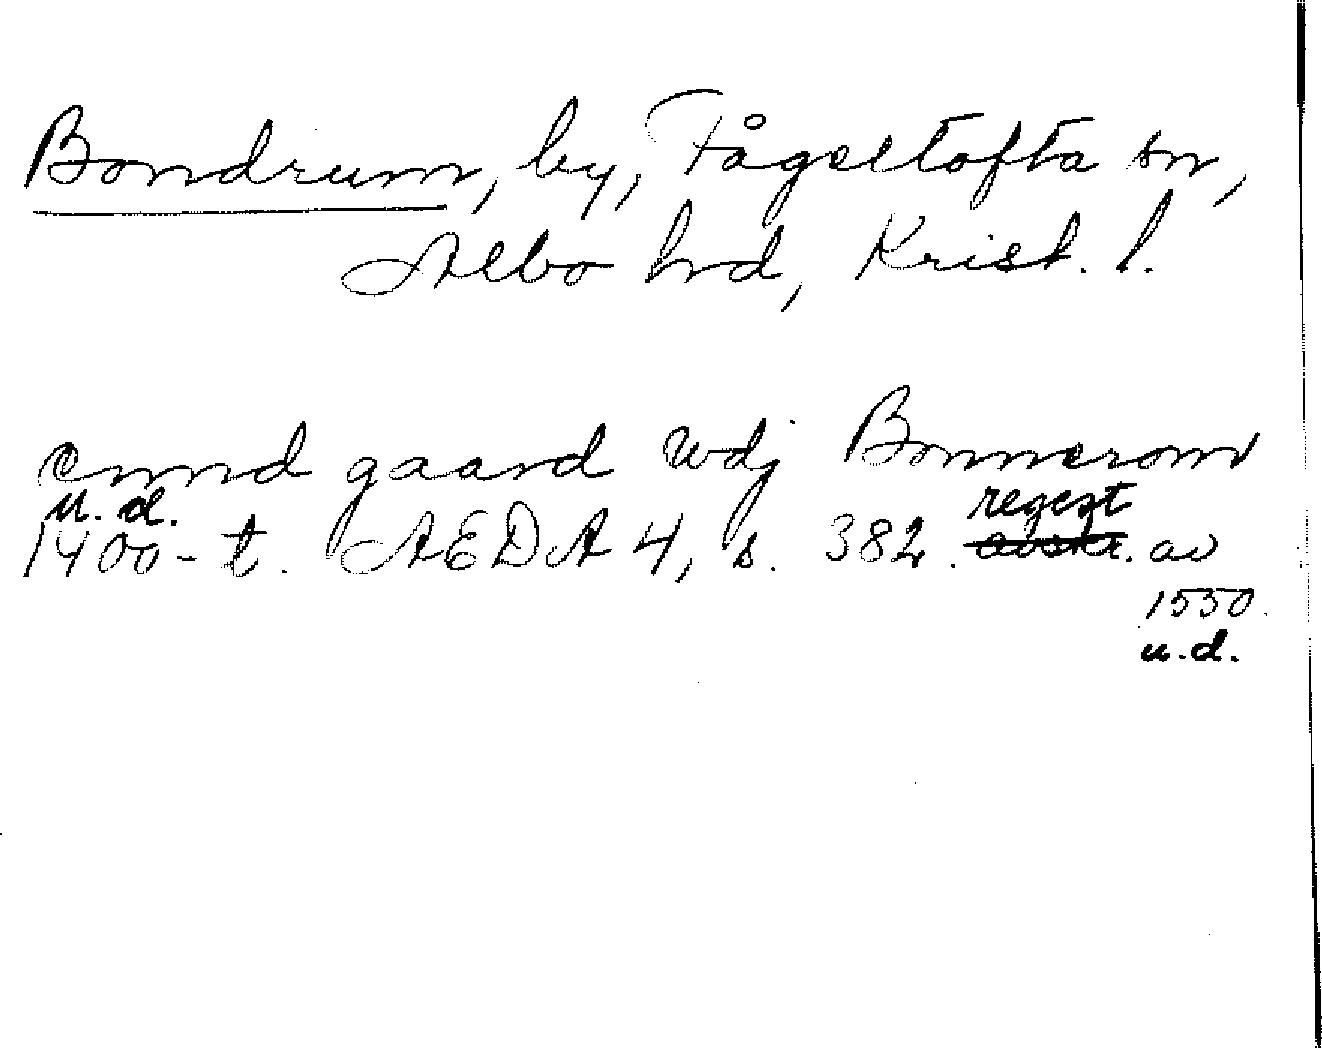 Bondrum, by, Fågeltofta sn,
Albo hrd, Krist. l.
ennd gaard wdj Bonnerom
u. d.
regest
1400-t. AEDA 4, s. 382. avskr. av
1550.
u.d.